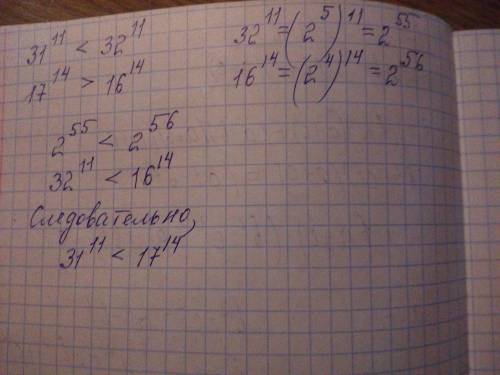 31¹¹ < 32¹¹
17¹⁴ > 16¹⁴
32¹¹ = (2⁵)¹¹ = 2⁵⁵
16¹⁴ = (2⁴)¹⁴ = 2⁵⁶
2⁵⁵ < 2⁵⁶
32¹¹ < 16¹⁴
Следовательно,
31¹¹ < 17¹⁴